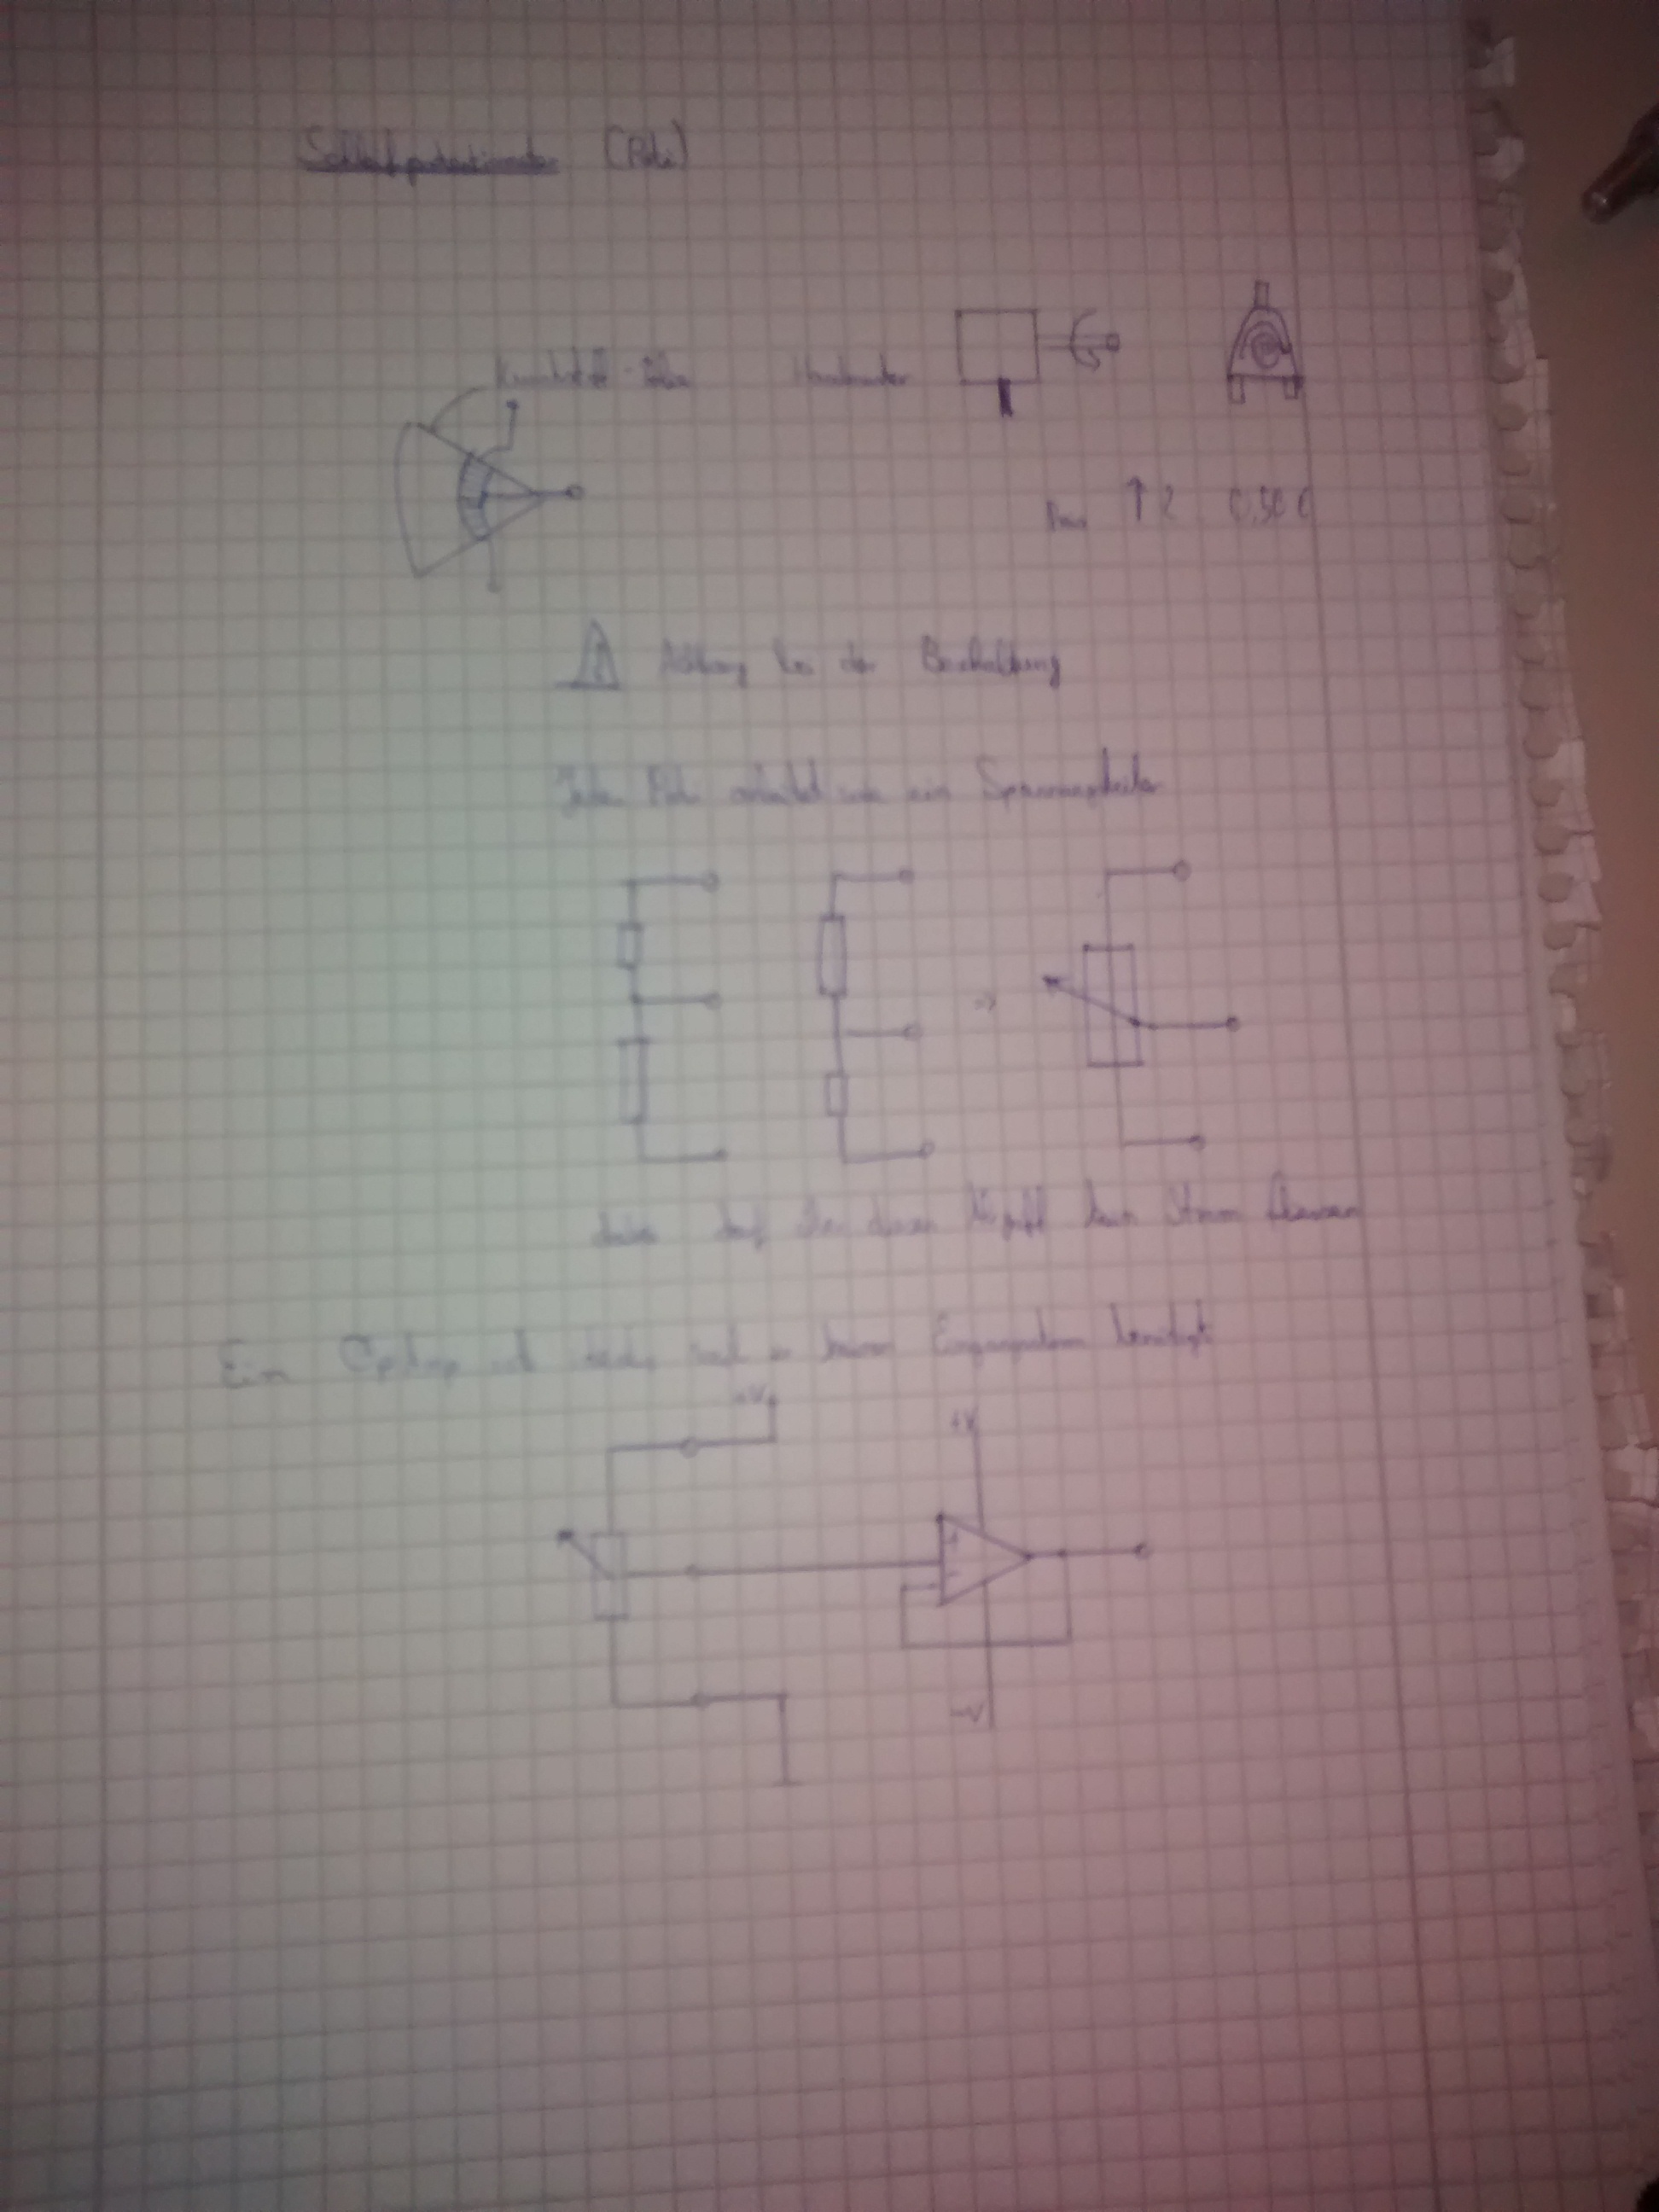 Schleifpotentiometer (Poti)
Kunststoff-
Achtung bei der Beschaltung
Jeder Poti arbeitet wie ein Spannungsteiler
=>
daher darf über diesen Abgriff kein Strom fliessen
Ein OpAmp keinen Eingangsstrom benötigt
+V +V
+
-
-V